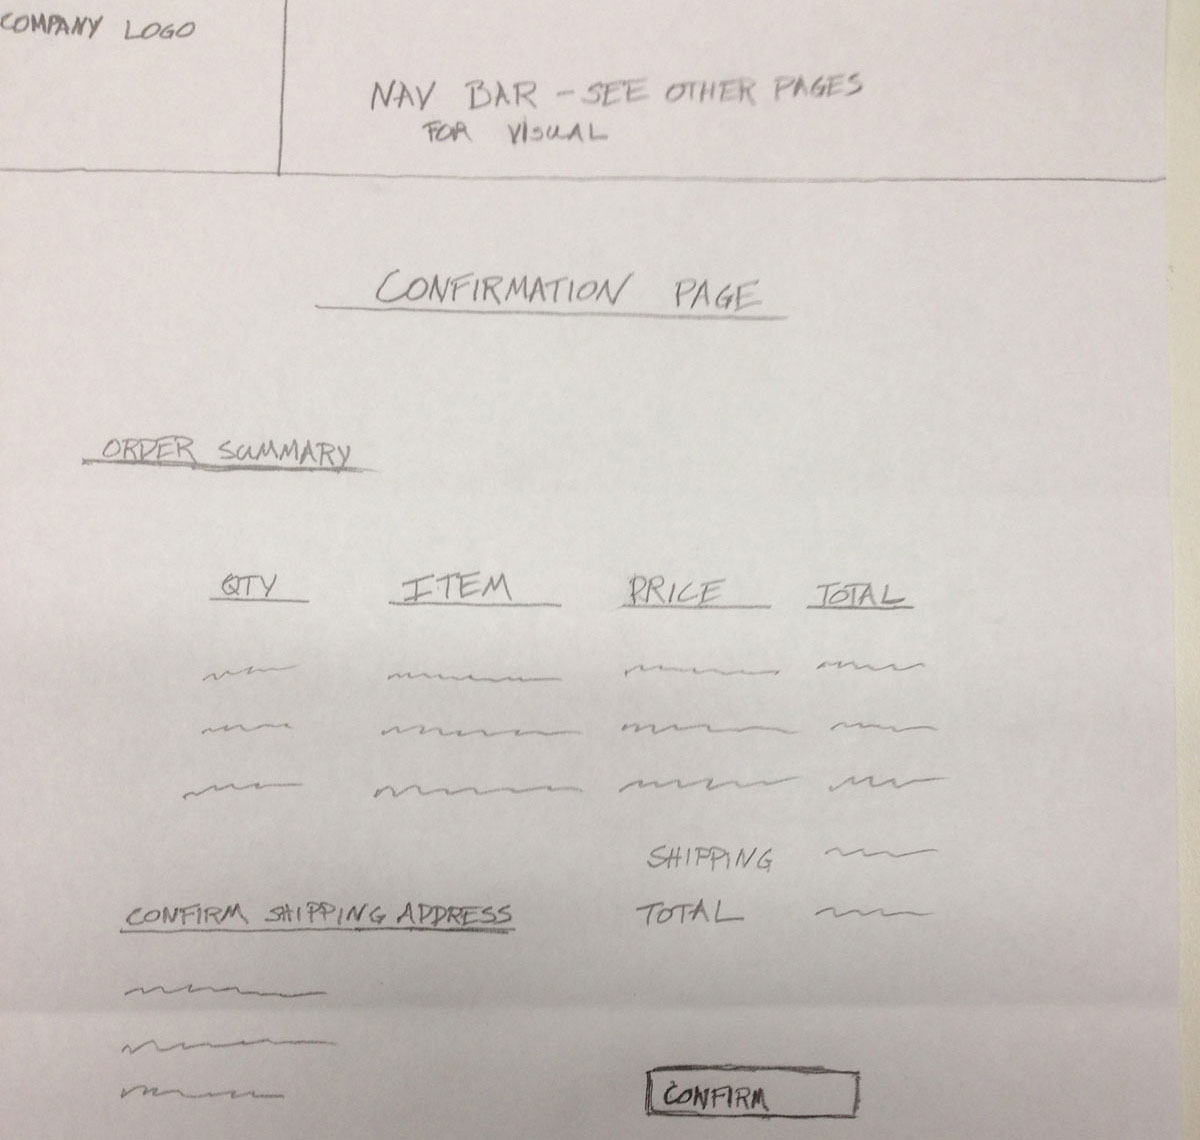 COMPANY LOGO
NAV BAR - SEE OTHER PAGES
FOR VISUAL
CONFIRMATION PAGE
ORDER SUMMARY
QTY ITEM PRICE TOTAL
SHIPPING
CONFIRM SHIPPING ADDRESS TOTAL
CONFIRM